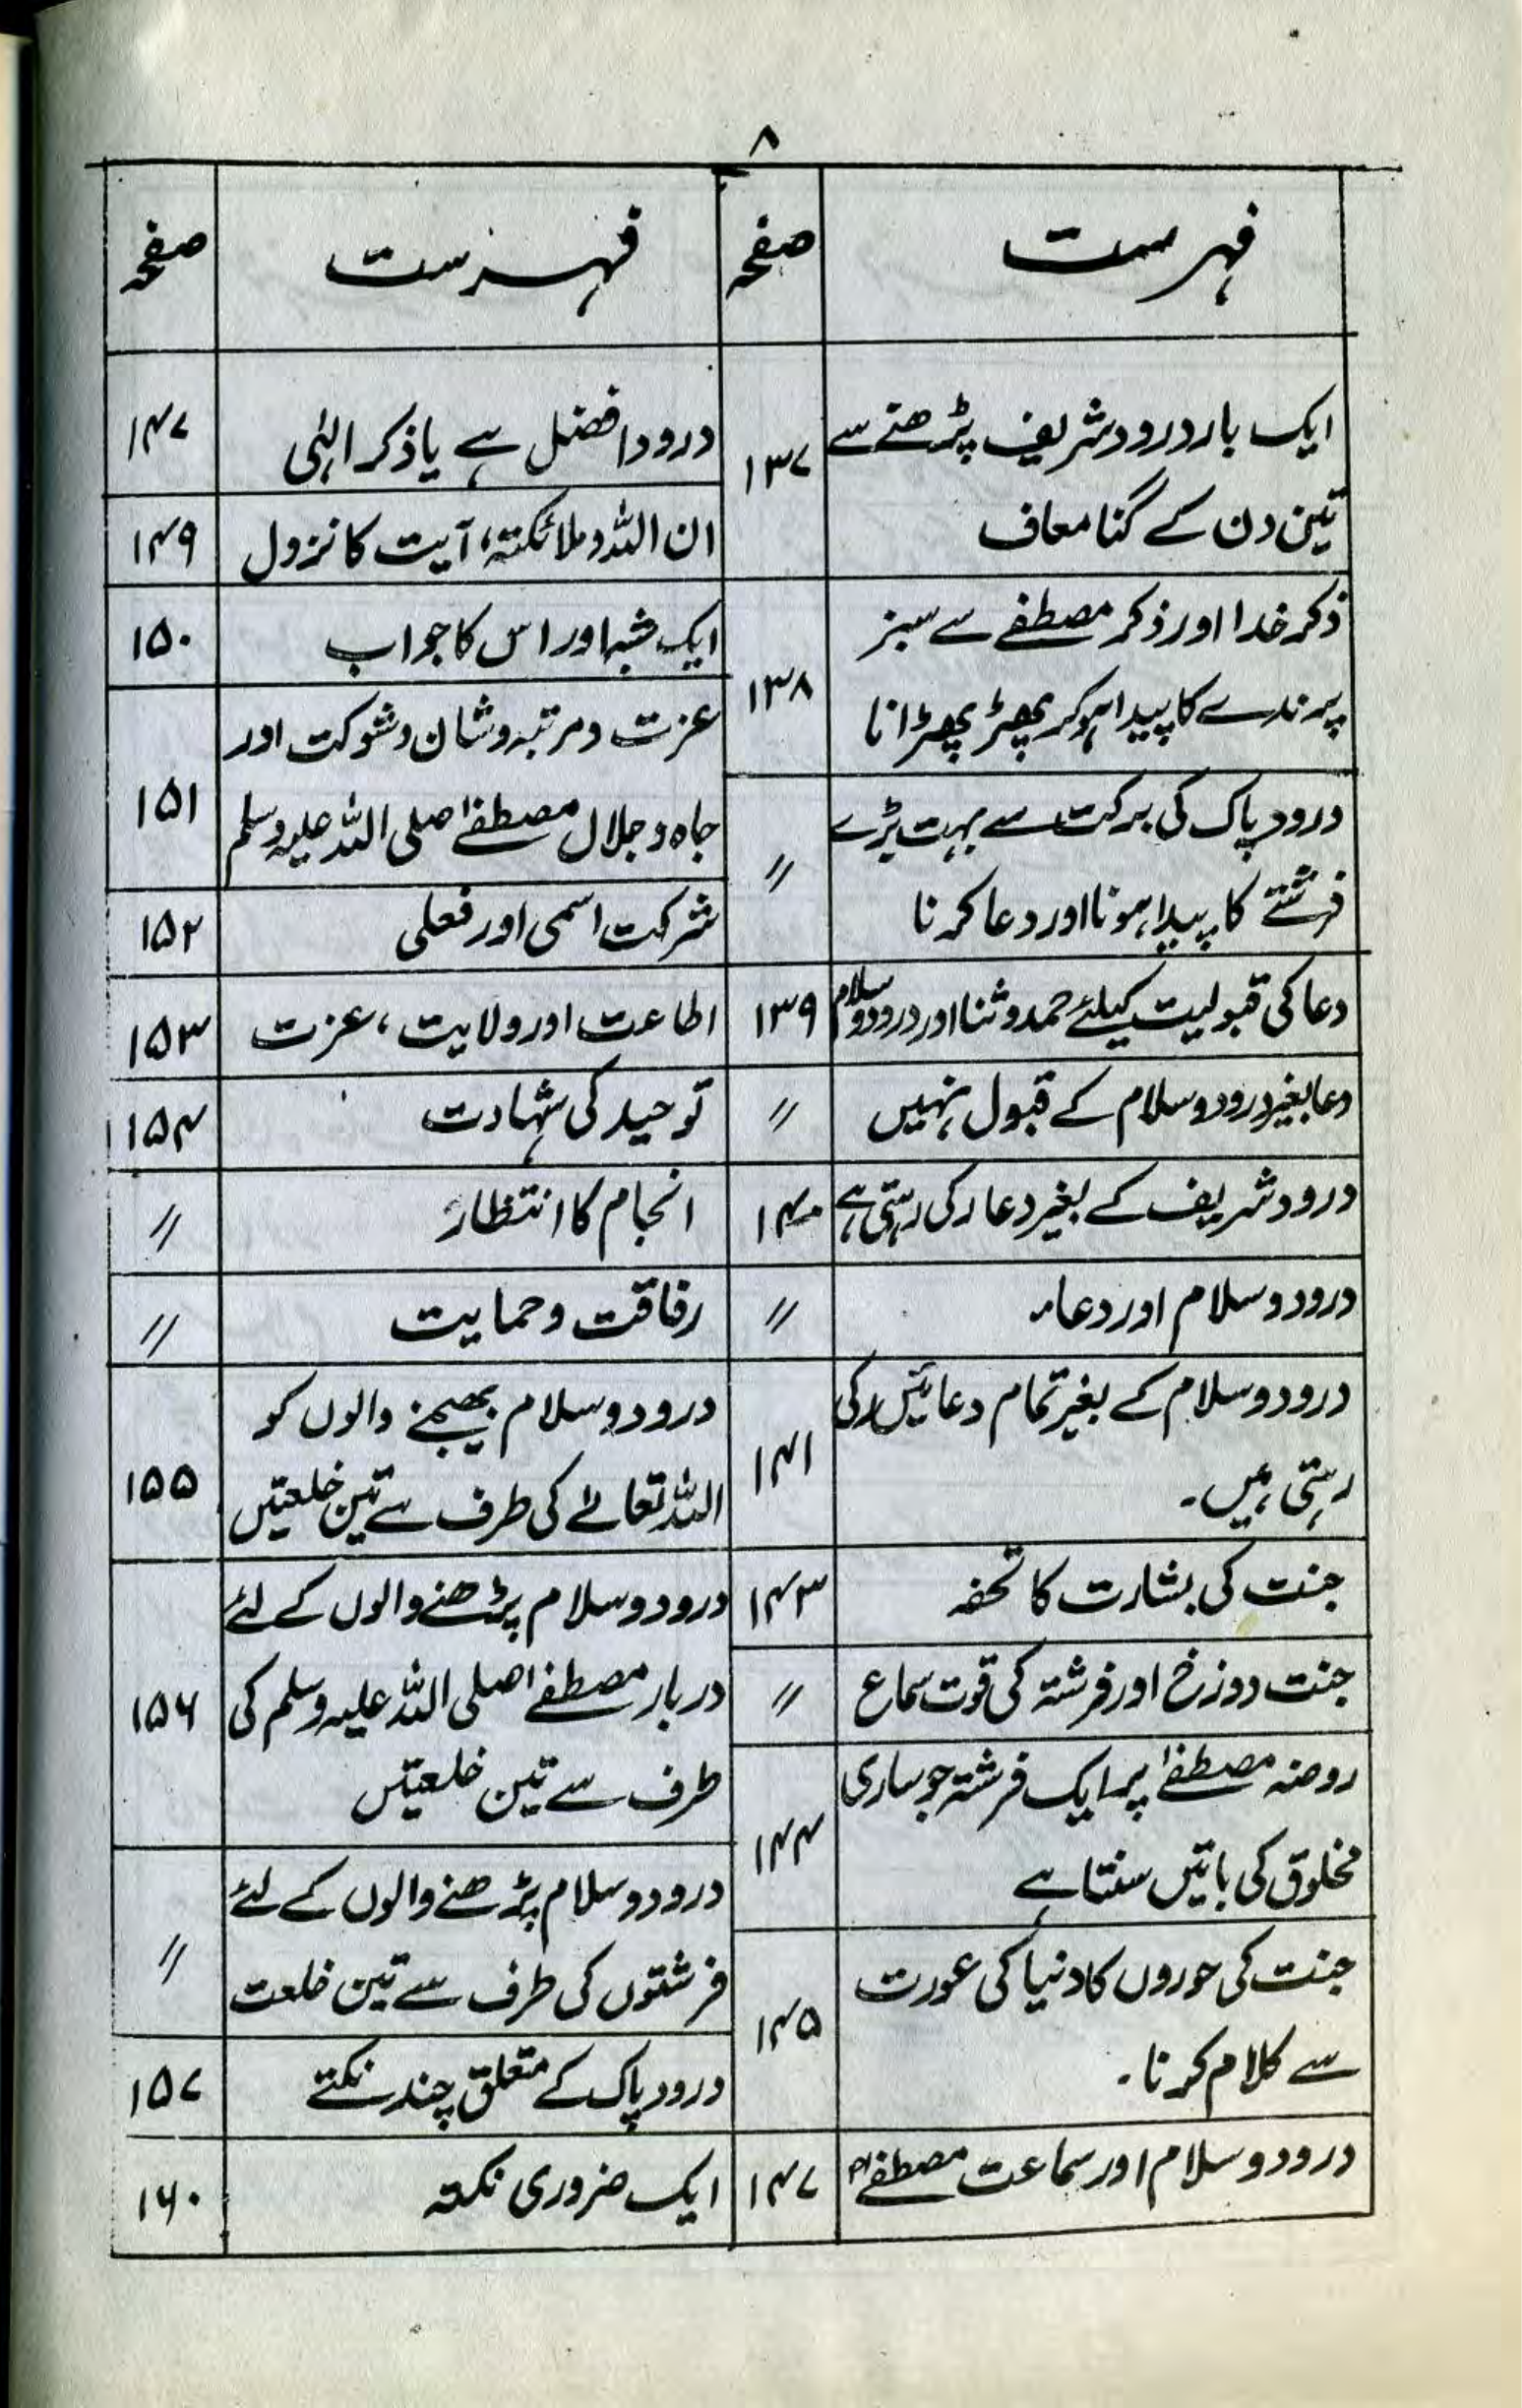 ۸
فہرست
صفحہ
ایک بار درود شریف پڑھنے سے
تین دن کے گنا معاف
۱۳۷
ذکر خدا اور ذکر مصطفےٰ سے سبز
پرندے کا پیدا ہوکر پھڑ پھڑانا
۱۳۸
درود پاک کی برکت سے بہت بڑے
فرشتے کا پیدا ہونا اور دعا کرنا
〃
دعا کی قبولیت کیلئے حمد و ثنا اور درود و سلام
۱۳۹
دعا بغیر درود و سلام کے قبول نہیں
〃
درود شریف کے بغیر دعا رکی رہتی ہے
۱۴۰
درود و سلام اور دعاء
〃
درود و سلام کے بغیر تمام دعائیں رکی
رہتی ہیں۔
۱۴۱
جنت کی بشارت کا تحفہ
۱۴۳
جنت دوزخ اور فرشتہ کی قوت سماع
〃
روضہ مصطفےٰ پر ایک فرشتہ جو ساری
مخلوق کی باتیں سنتا ہے
۱۴۴
جنت کی حوروں کا دنیا کی عورت
سے کلام کرنا۔
۱۴۵
درود و سلام اور سماعت مصطفےٰؐ
۱۴۷
فہرست
صفحہ
درود افضل ہے یا ذکر الہٰی
۱۴۷
ان اللہ و ملائکتہ، آیت کا نزول
۱۴۹
ایک شبہ اور اس کا جواب
۱۵۰
عزت و مرتبہ و شان و شوکت اور
جاہ و جلال مصطفےٰ صلی اللہ علیہ وسلم
۱۵۱
شرکت اسمی اور فعلی
۱۵۲
اطاعت اور ولایت، عزت
۱۵۳
توحید کی شہادت
۱۵۴
انجام کا انتظار
〃
رفاقت و حمایت
〃
درود و سلام بھیجنے والوں کو
اللہ تعالےٰ کی طرف سے تین خلعتیں
۱۵۵
درود و سلام پڑھنے والوں کے لئے
دربار مصطفےٰ صلی اللہ علیہ وسلم کی
طرف سے تین خلعتیں
۱۵۶
درود و سلام پڑھنے والوں کے لئے
فرشتوں کی طرف سے تین خلعت
〃
درود پاک کے متعلق چند نکتے
۱۵۷
ایک ضروری نکتہ
۱۶۰